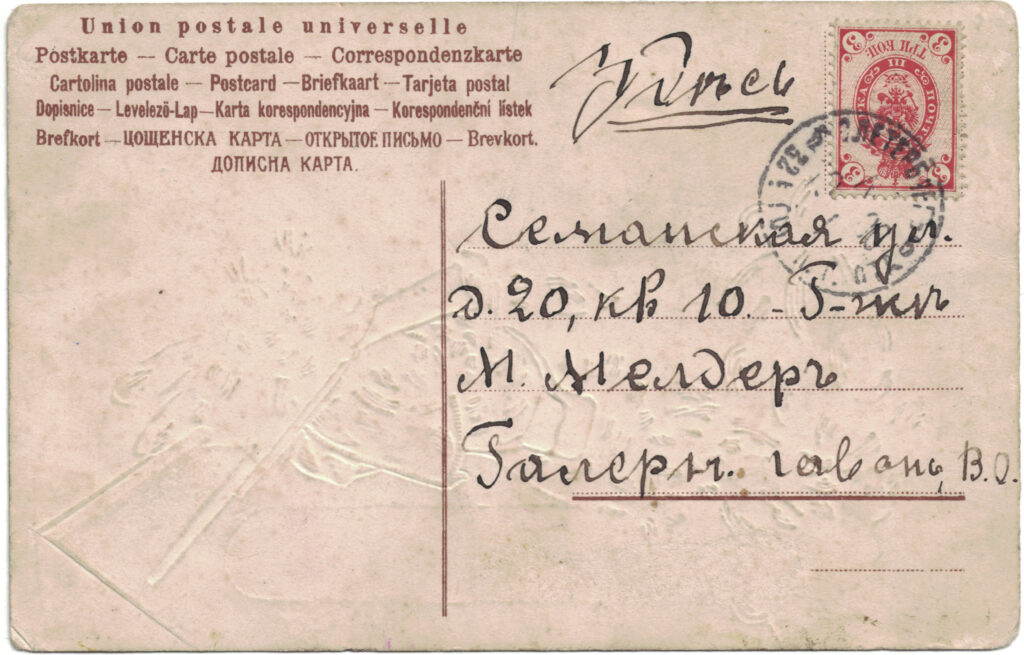 Union postale universelle
Postkarte – Carte postale – Correspondenzkarte
Cartolina postale – Postcard – Briefkaart – Tarjeta postal
Dopisnice – Levelezö-Lap – Karta korespondencyjna – Korespondenční lístek
Brefkort – ЦОЩЕНСКА КАРТА – ОТКРЫТОЕ ПИСЬМО – Brevkort.
ДОПИСНА КАРТА.
Здѣсь
3 ТРИ КОП. 3
III
3 3
С.ПЕТЕРБУРГЪ
ул.
д. 20, кв 10. - Г-жѣ
М. Мелдеръ
Галерн. гавань, В.О.